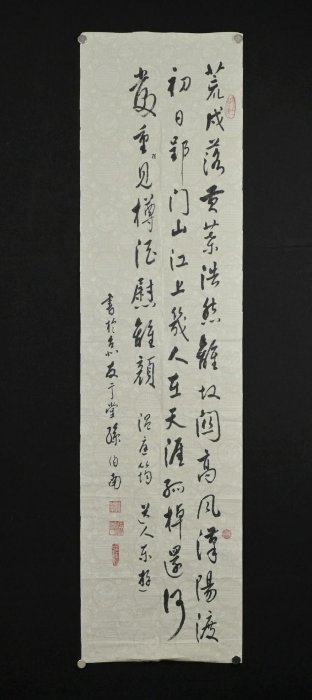 荒戍落黄葉浩然離故關高風漢陽渡
初日郢门山江上幾人在天涯孤棹還何
當重見樽酒慰離顔 温庭筠 送人东遊
書於 友 堂孫伯南